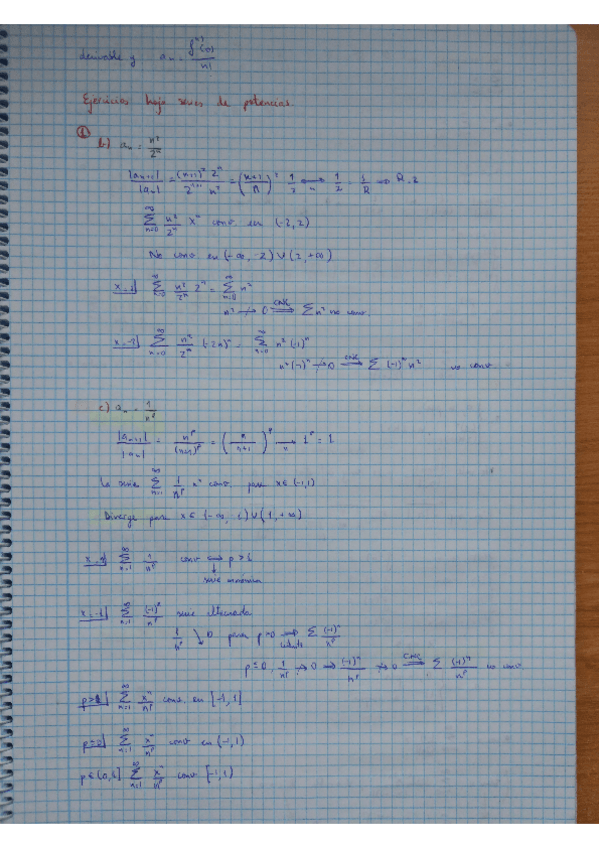 derivable y a_n = f^(n)(0)/n!
Ejercicios hoja series de potencias.
① b) a_n = n²/2^n
|a_{n+1}|/|a_n| = (n+1)² 2^n / 2^{n+1} n² = ((n+1)/n)² · 1/2 → 1/2 = 1/R → R=2
∑_{n=0}^∞ n²/2^n x^n conv. en (-2,2)
No conv en (-∞,-2) ∪ (2,+∞)
x=2| ∑_{n=0}^∞ n²/2^n 2^n = ∑_{n=0}^∞ n²
n² ↛ 0 ⟹(CNC) ∑ n² no conv
x=-2| ∑_{n=0}^∞ n²/2^n (-2)^n = ∑_{n=0}^∞ n² (-1)^n
n² (-1)^n ↛ 0 ⟹(CNC) ∑ (-1)^n n² no conv
c) a_n = 1/n^p
|a_{n+1}|/|a_n| = n^p/(n+1)^p = (n/(n+1))^p → 1^p = 1
La serie ∑_{n=1}^∞ 1/n^p x^n conv. para x∈(-1,1)
Diverge para x∈(-∞,-1)∪(1,+∞)
x=1| ∑_{n=1}^∞ 1/n^p conv ⟺ p>1
serie armónica
x=-1| ∑_{n=1}^∞ (-1)^n/n^p serie alternada
1/n^p ↘ 0 para p>0 ⟹ ∑ (-1)^n/n^p
p≤0, 1/n^p ↛ 0 ⟹ (-1)^n/n^p ↛ 0 ⟹(CNC) ∑ (-1)^n/n^p no conv
p>1| ∑_{n=1}^∞ x^n/n^p conv. en [-1,1]
p≤0| ∑_{n=1}^∞ x^n/n^p conv en (-1,1)
p∈(0,1] ∑_{n=1}^∞ x^n/n^p conv [-1,1)